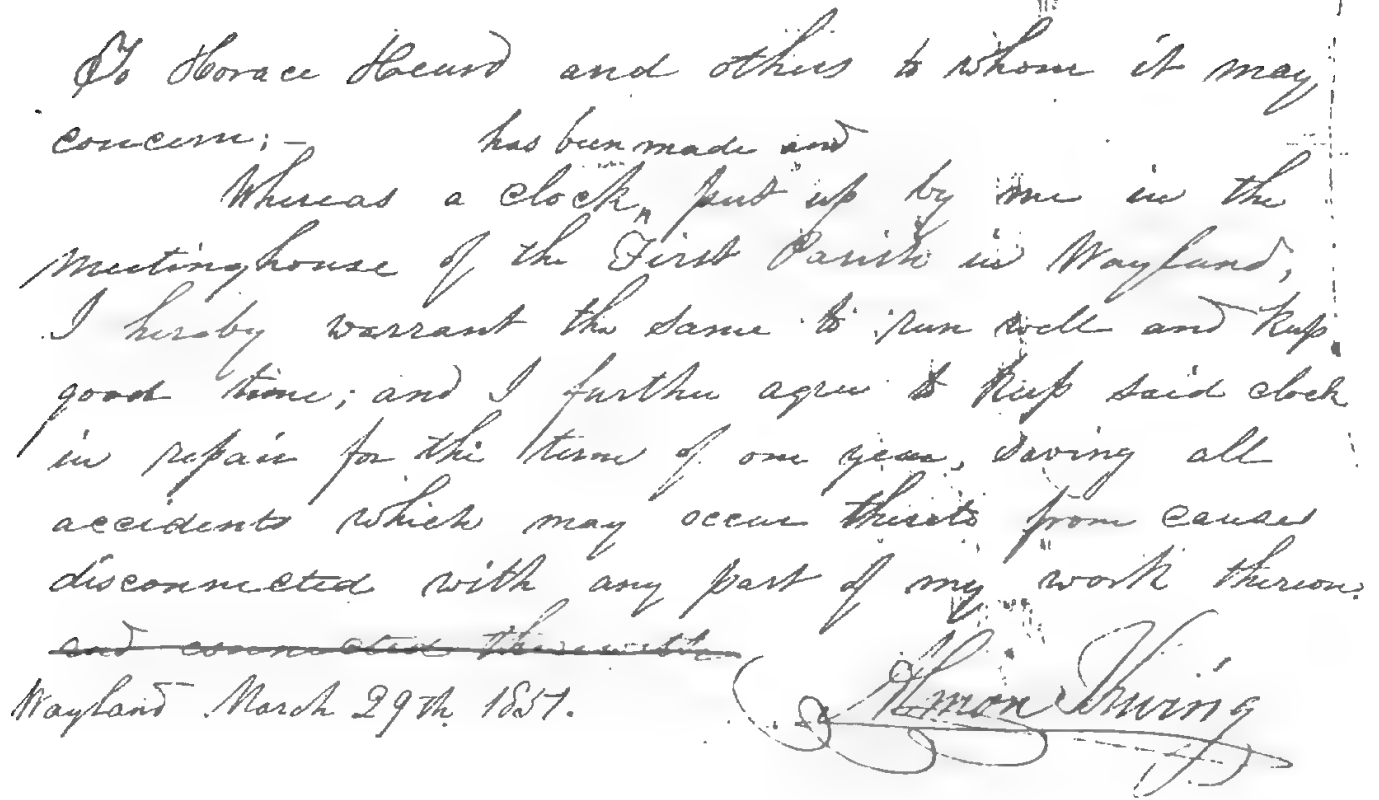 To Horace Heard and others to whom it may
concern; -
has been made and
Whereas a clock, put up by me in the
Meetinghouse of the First Parish in Wayland,
I hereby warrant the same to run well and keep
good time; and I further agree to keep said clock
in repair for the term of one year, saving all
accidents which may occur thereto from causes
disconnected with any part of my work thereon.
and connected therewith
Wayland March 29th. 1851.
Almon Irving